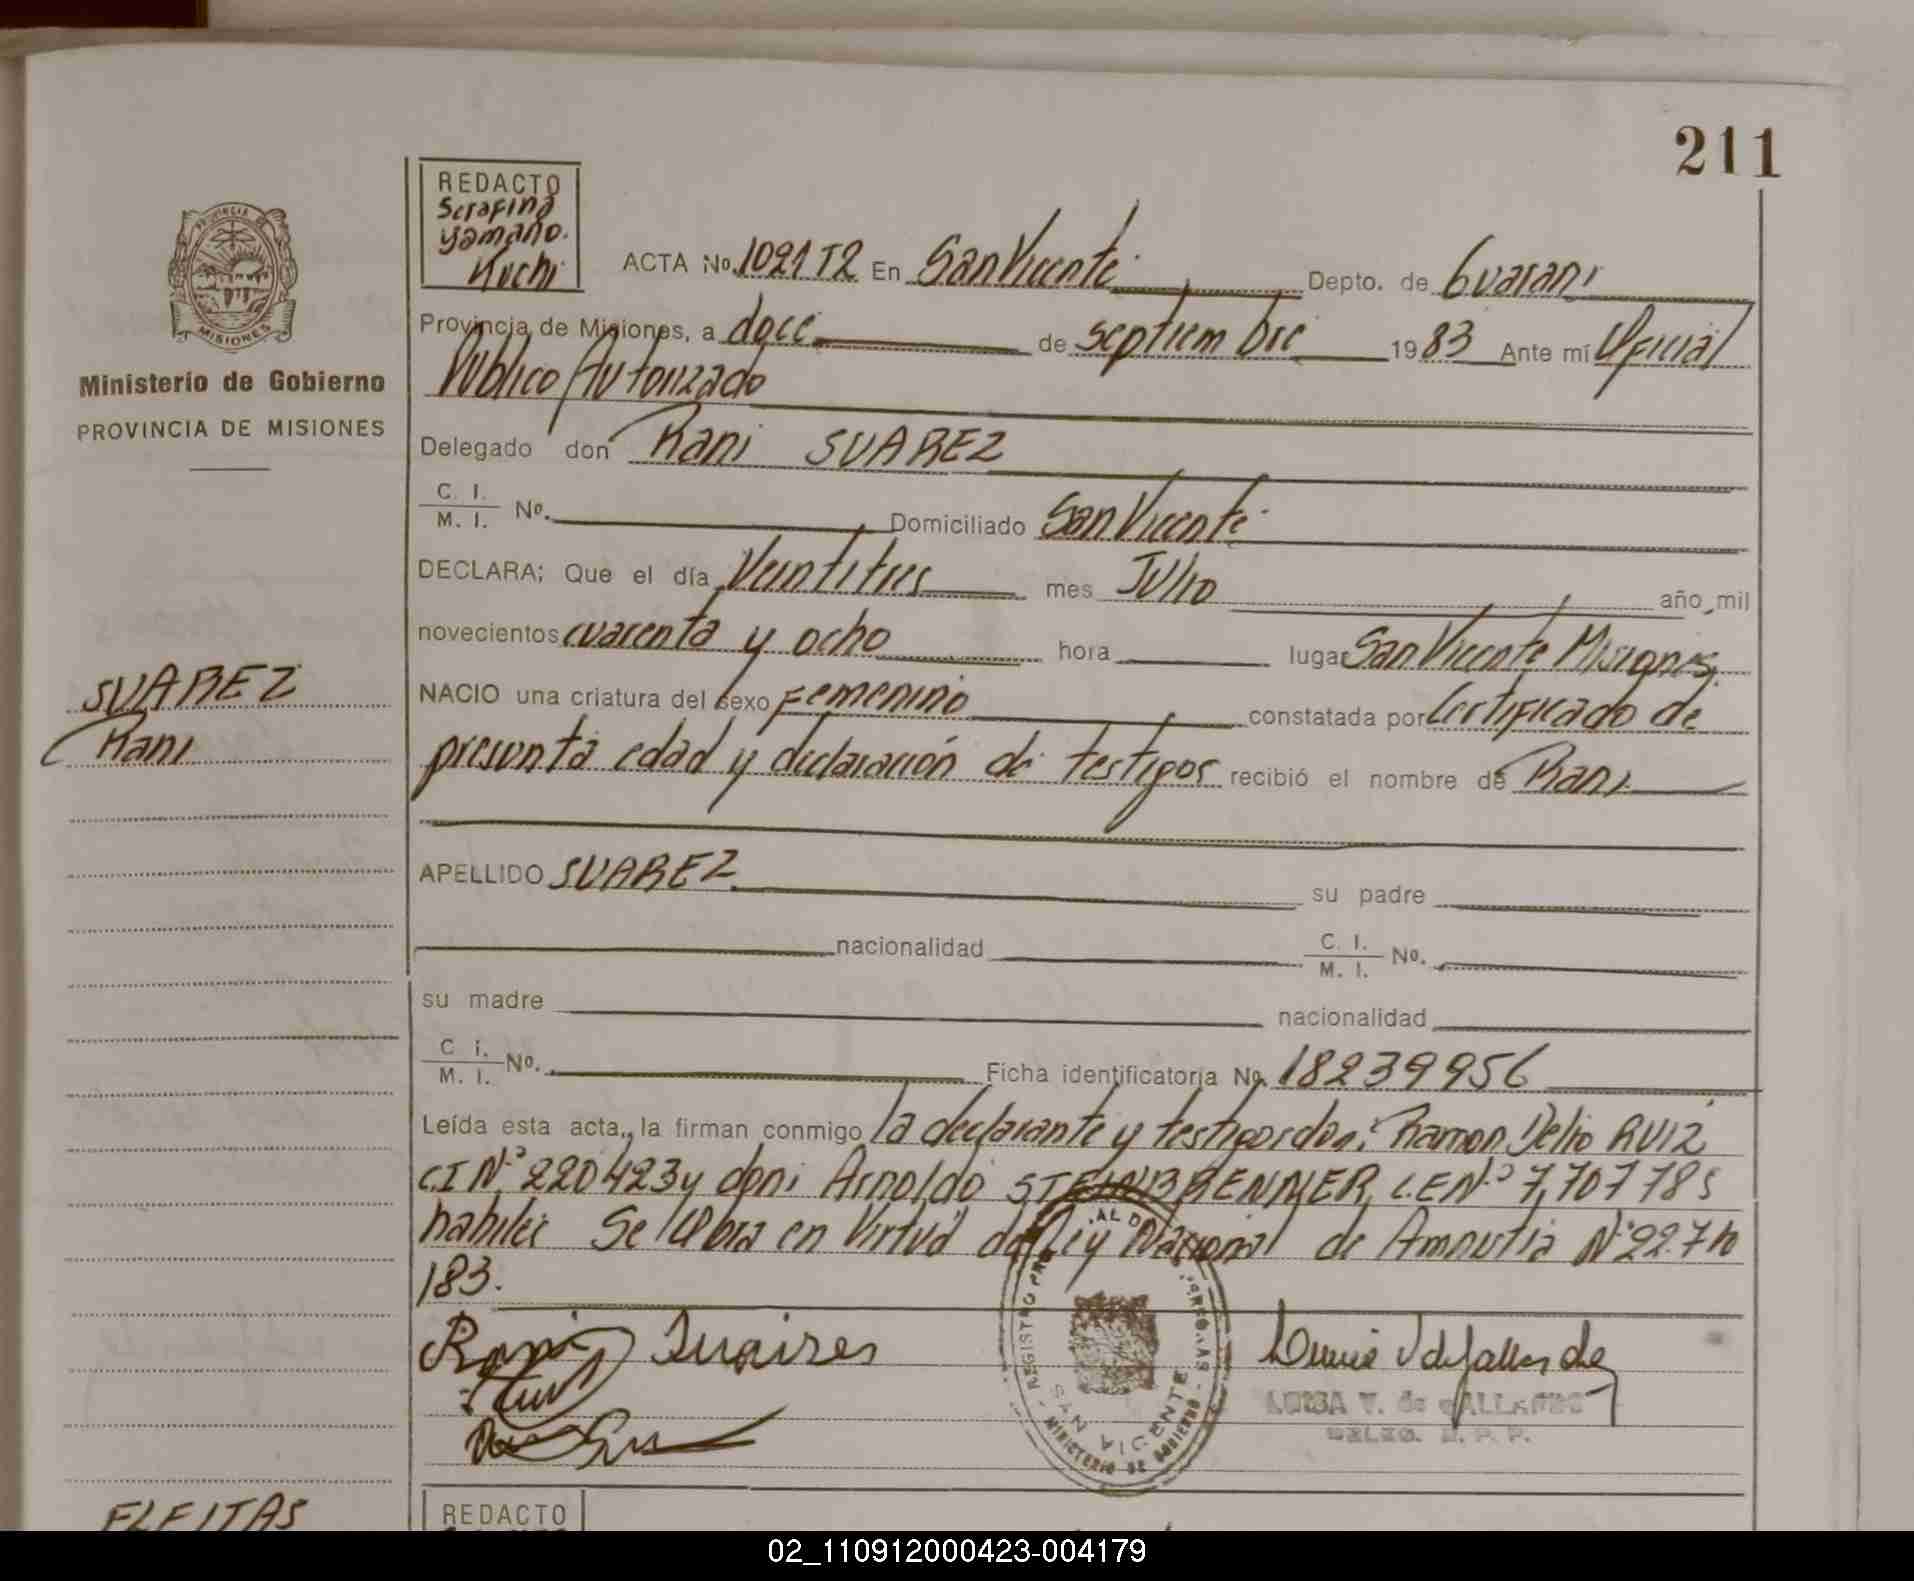 211
REDACTO
Serafina
Yamaño.
Kuchi
ACTA No. 1021 T2 En San Vicente Depto. de Guarani
Provincia de Misiones, a doce de septiembre 1983 Ante mí Oficial
Publico Autorizado
PROVINCIA DE
MISIONES
Ministerio de Gobierno
PROVINCIA DE MISIONES
Delegado don Rani SUAREZ
C. I.
M. I. No. Domiciliado San Vicente
DECLARA; Que el día Veintitres mes Julio año mil
novecientos cuarenta y ocho hora lugar San Vicente Misiones
SUAREZ
Rani
NACIO una criatura del sexo Femenino constatada por Certificado de
presunta edad y declaración de testigos recibió el nombre de Rani
APELLIDO SUAREZ su padre
nacionalidad C. I.
M. I. No.
su madre nacionalidad
C. i.
M. I. No. Ficha identificatoria No. 18239956
Leída esta acta, la firman conmigo la declarante y testigos don: Ramon Delio RUIZ
C.I Nº 220423 y don: Arnoldo STEINBRENNER, L.E Nº 7,707785
habiles Se labra en Virtud de Ley Nacional de Amnistia Nº 22.710
183.
Rani Suaires
REGISTRO
SAN VICENTE
MINISTERIO DE GOBIERNO
LUISA V. de GALLARDO
DELEG. R. P. P.
FLEITAS
REDACTO
02_110912000423-004179